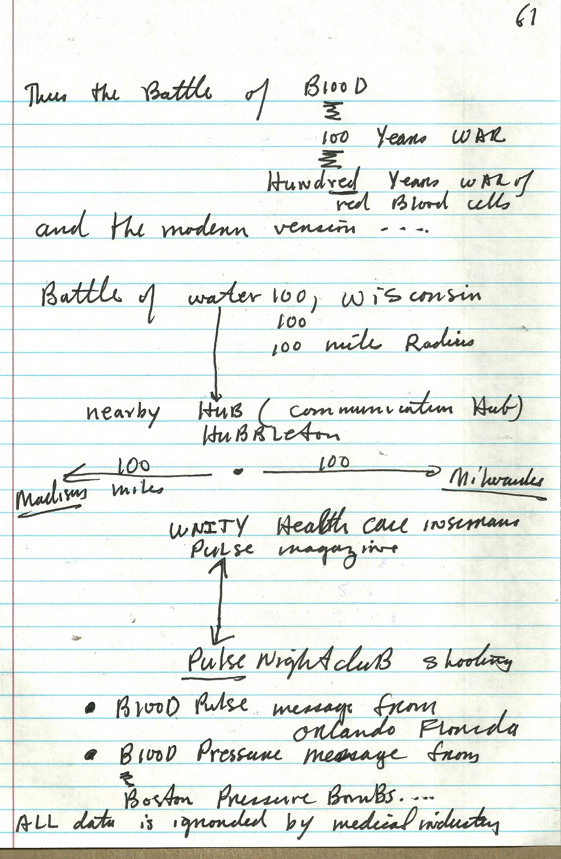 61
Thus the Battle of B100D
100 Years WAR
Hundred Years WAR of
red Blood cells
and the modern version ----
Battle of water 100, Wisconsin
100
100 mile Radius
nearby HUB (communication Hub)
HUBBleton
100 100
Madison miles Milwaukee
UNITY Health care insurance
Pulse magazine
Pulse NightcluB shooting
• B100D Pulse message from
Orlando Florida
• B100D Pressure message from
Boston Pressure BomBs....
ALL data is ignonded by medical industry